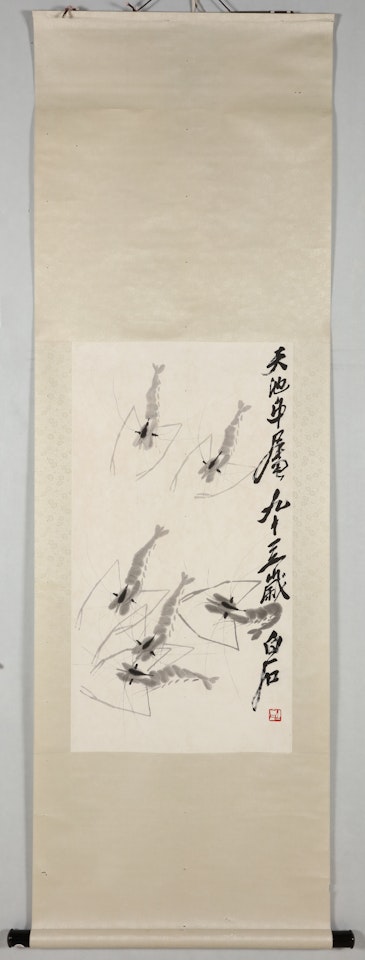 天池弟屬九十三歲白石